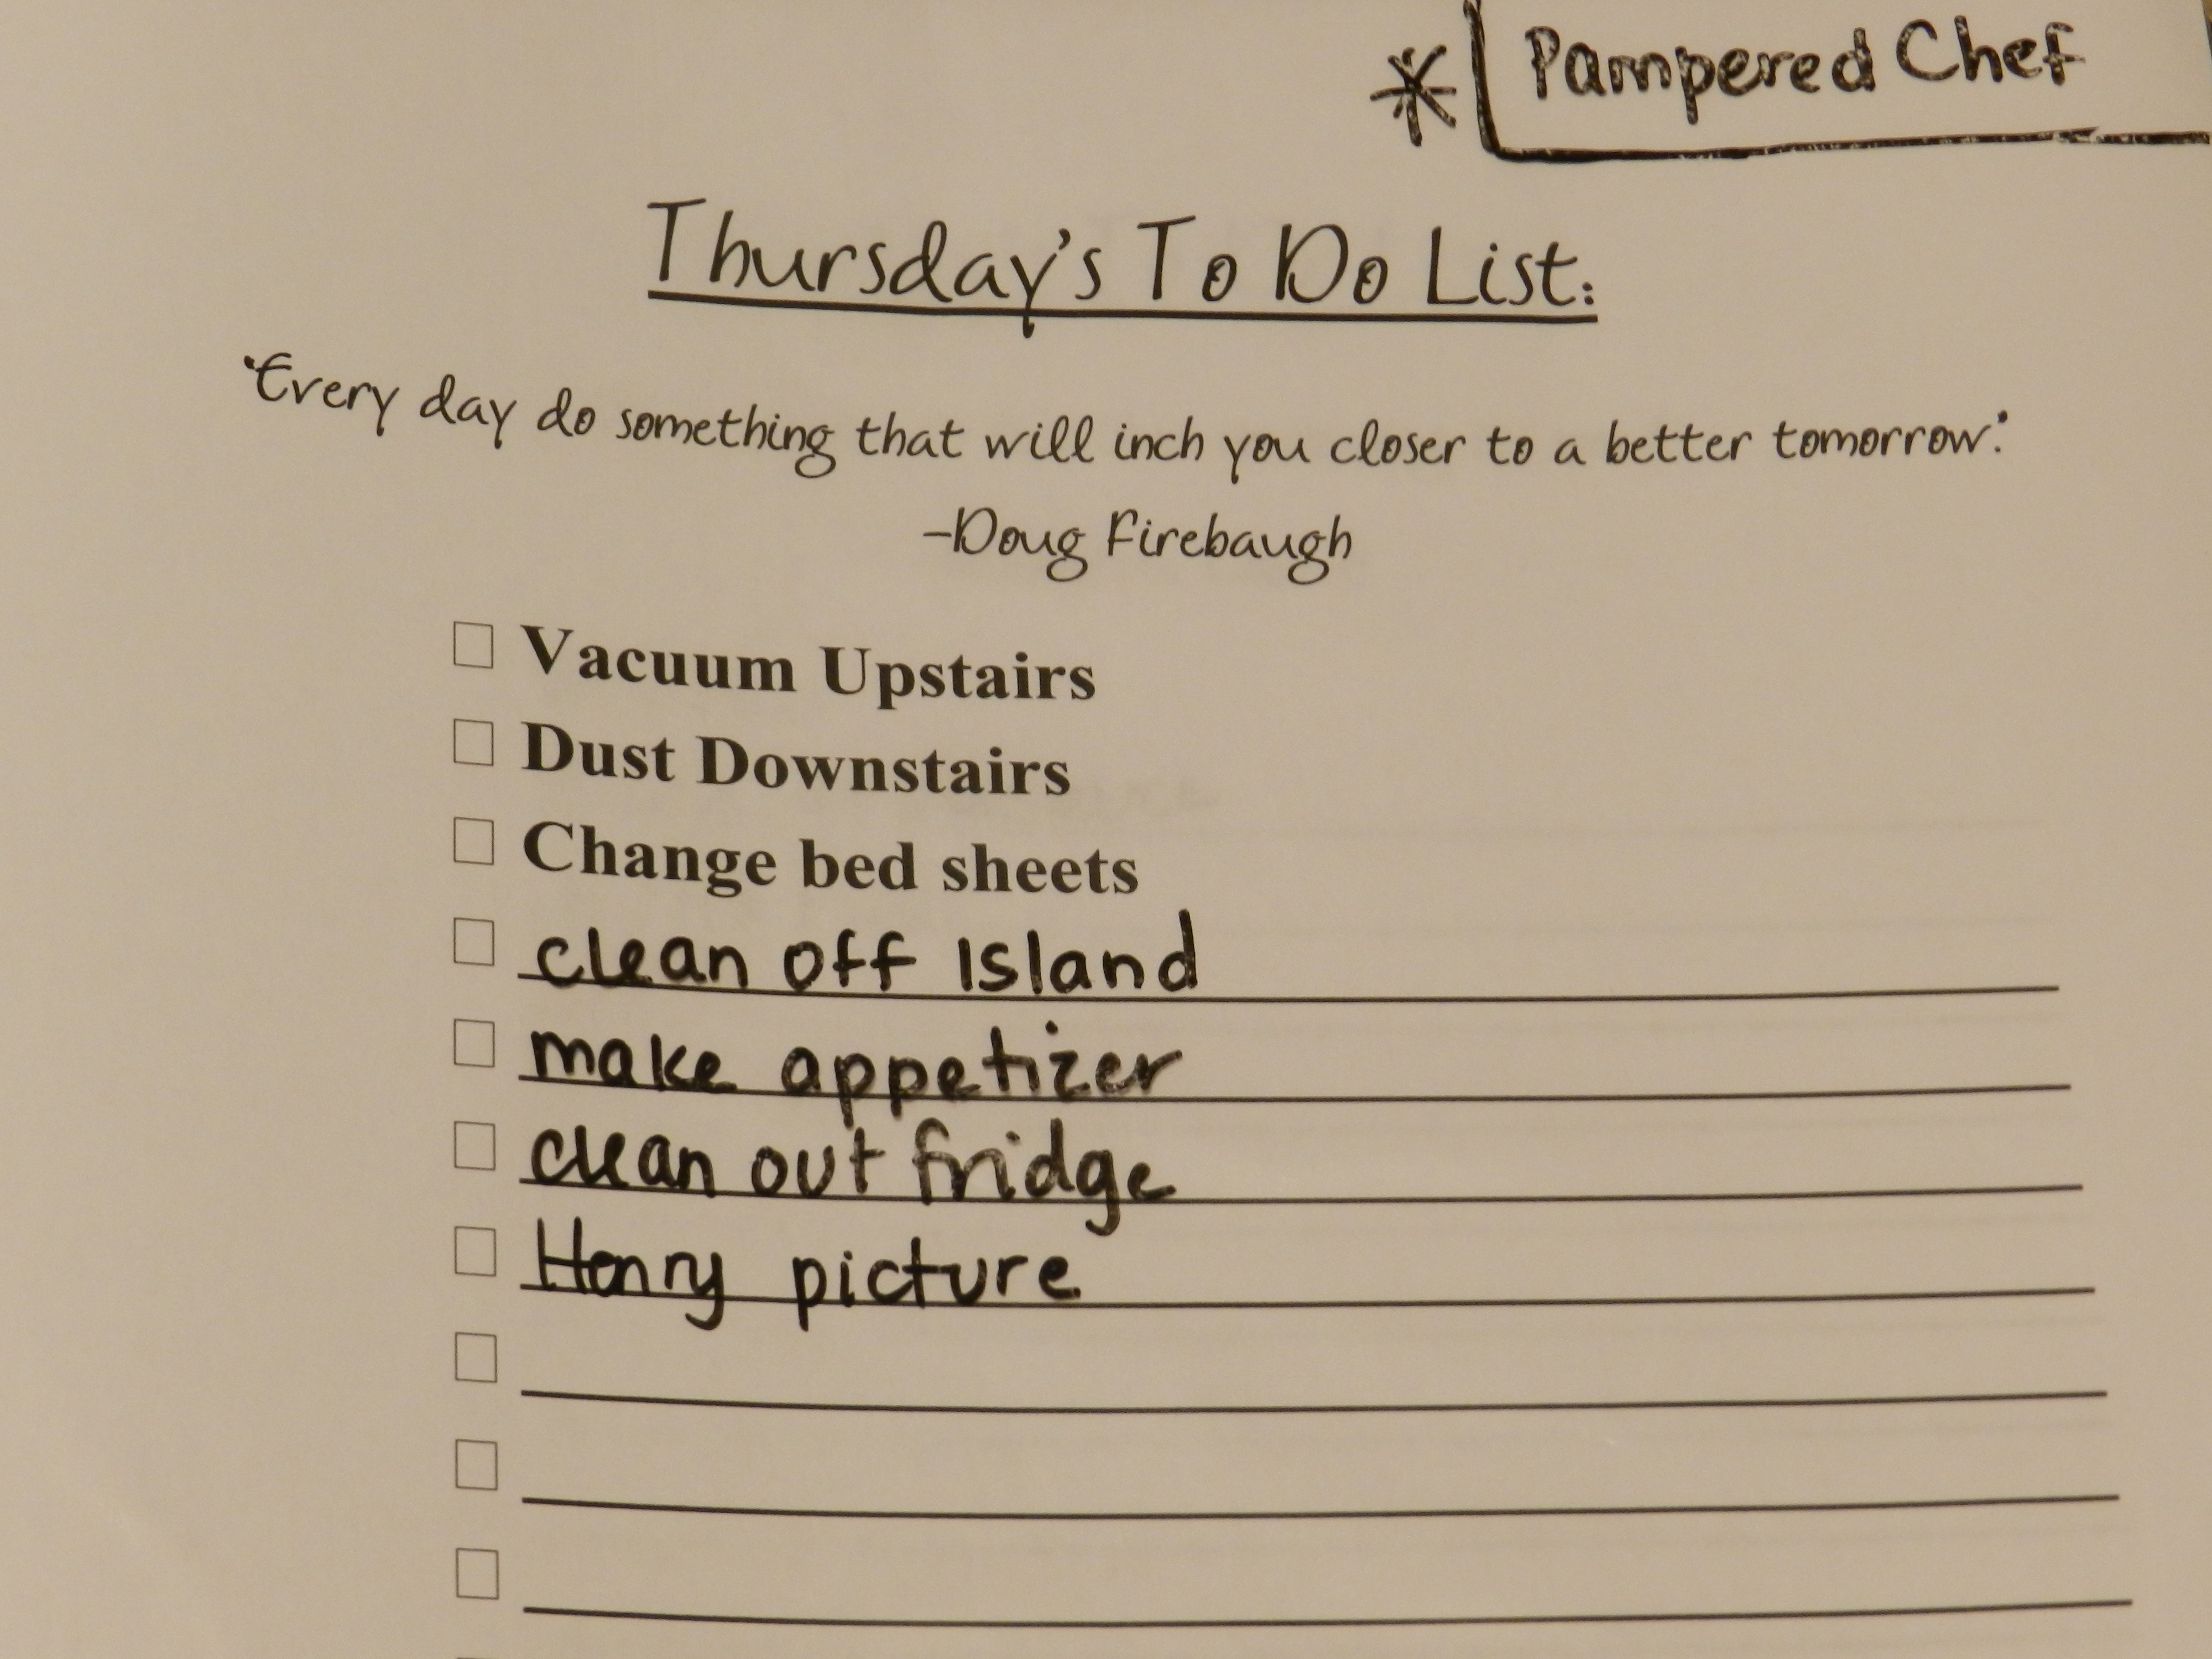 * Pampered Chef
Thursday's To Do List:
"Every day do something that will inch you closer to a better tomorrow."
-Doug Firebaugh
☐ Vacuum Upstairs
☐ Dust Downstairs
☐ Change bed sheets
☐ clean off Island
☐ make appetizer
☐ clean out fridge
☐ Henry picture
☐
☐
☐